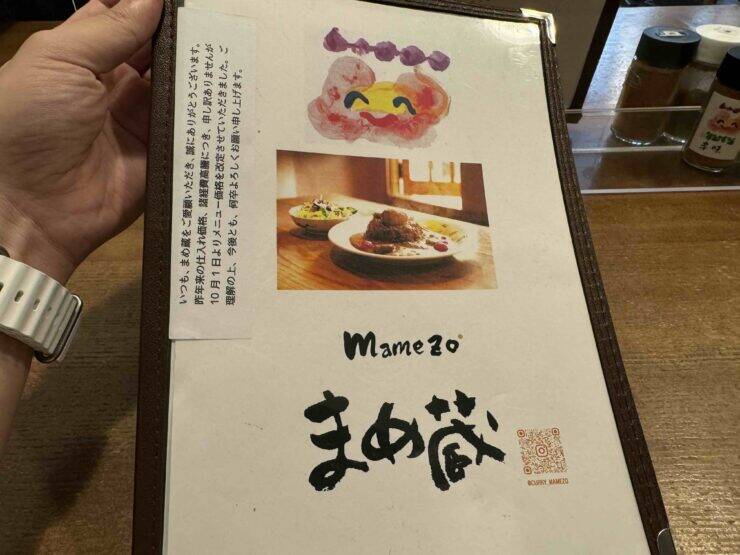 いつも、まめ蔵をご愛顧いただき、誠にありがとうございます。
昨年来の仕入れ価格、諸経費高騰につき、申し訳ありませんが
10月1日よりメニュー価格を改定させていただきました。ご
理解の上、今後とも、何卒よろしくお願い申し上げます。
mamezo
まめ蔵
@CURRY_MAMEZO